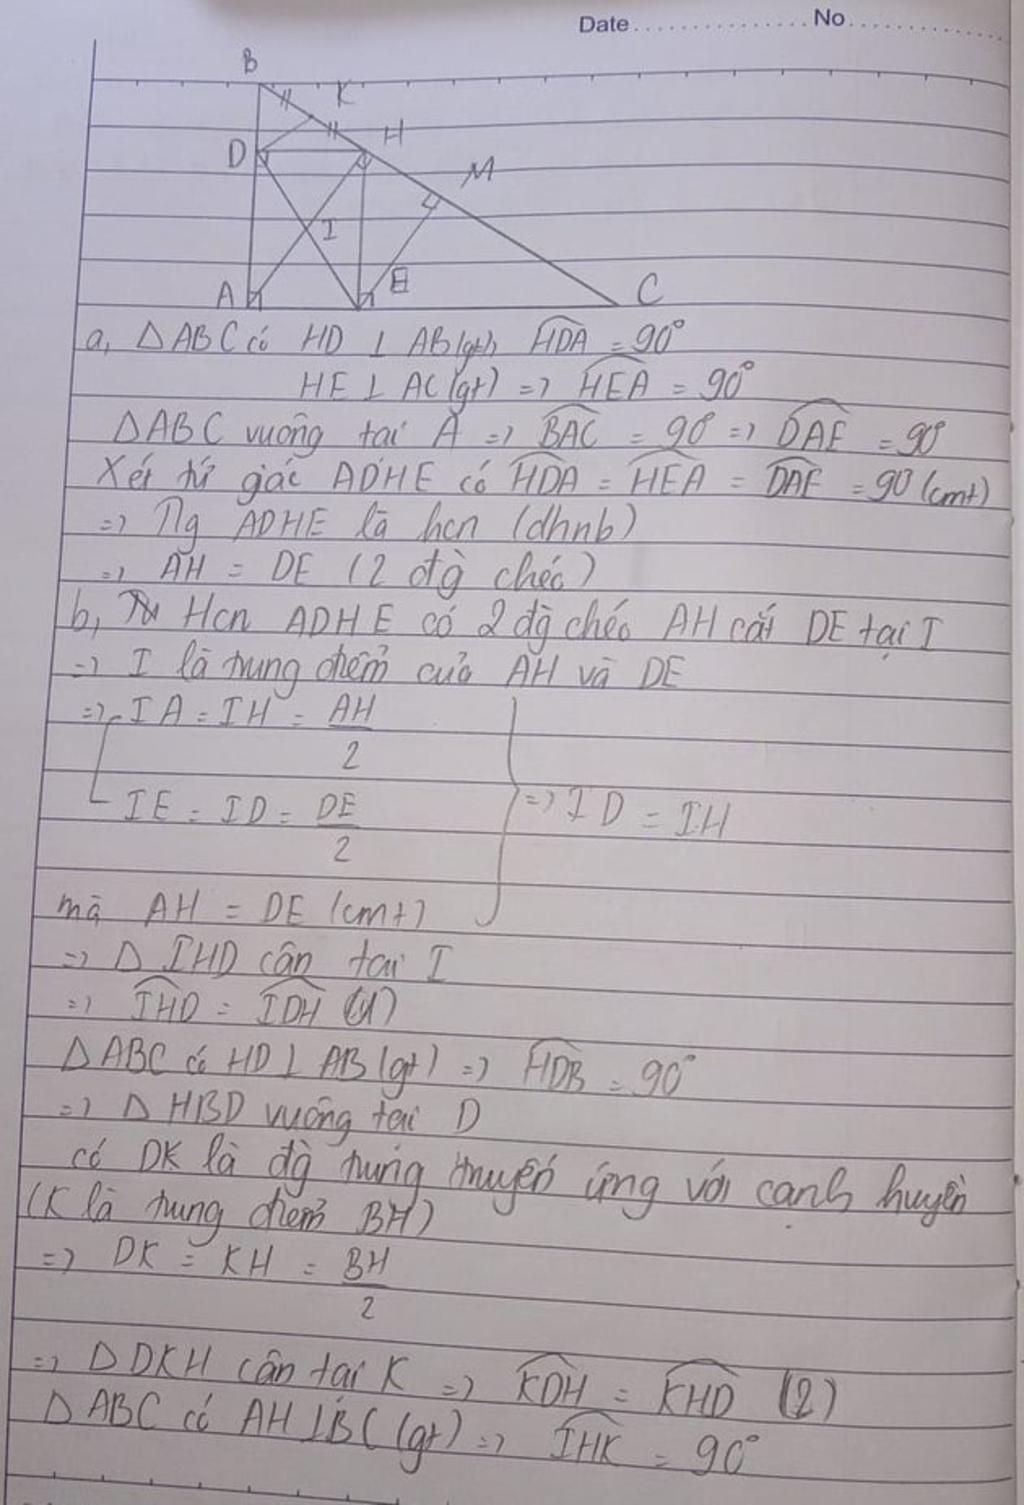 Date.................No.................
B
K
D
H
M
I
A
E
C
a, ΔABC có HD ⊥ AB (gt) HDA = 90°
HE ⊥ AC (gt) => HEA = 90°
ΔABC vuông tại A => BAC = 90° => DAE = 90°
Xét tứ giác ADHE có HDA = HEA = DAE = 90° (cmt)
=> Tlg ADHE là hcn (dhnb)
=> AH = DE (2 đg chéo)
b, Hcn ADHE có 2 đg chéo AH cắt DE tại I
=> I là trung điểm của AH và DE
=> IA = IH = AH/2
IE = ID = DE/2 => ID = IH
mà AH = DE (cmt)
=> Δ IHD cân tại I
=> IHD = IDH (1)
ΔABC có HD ⊥ AB (gt) => HDB = 90°
=> Δ HBD vuông tại D
có DK là đg trung truyến ứng với cạnh huyền
(K là trung điểm BH)
=> DK = KH = BH/2
=> Δ DKH cân tại K => KDH = KHD (2)
Δ ABC có AH ⊥ BC (gt) => IHK = 90°